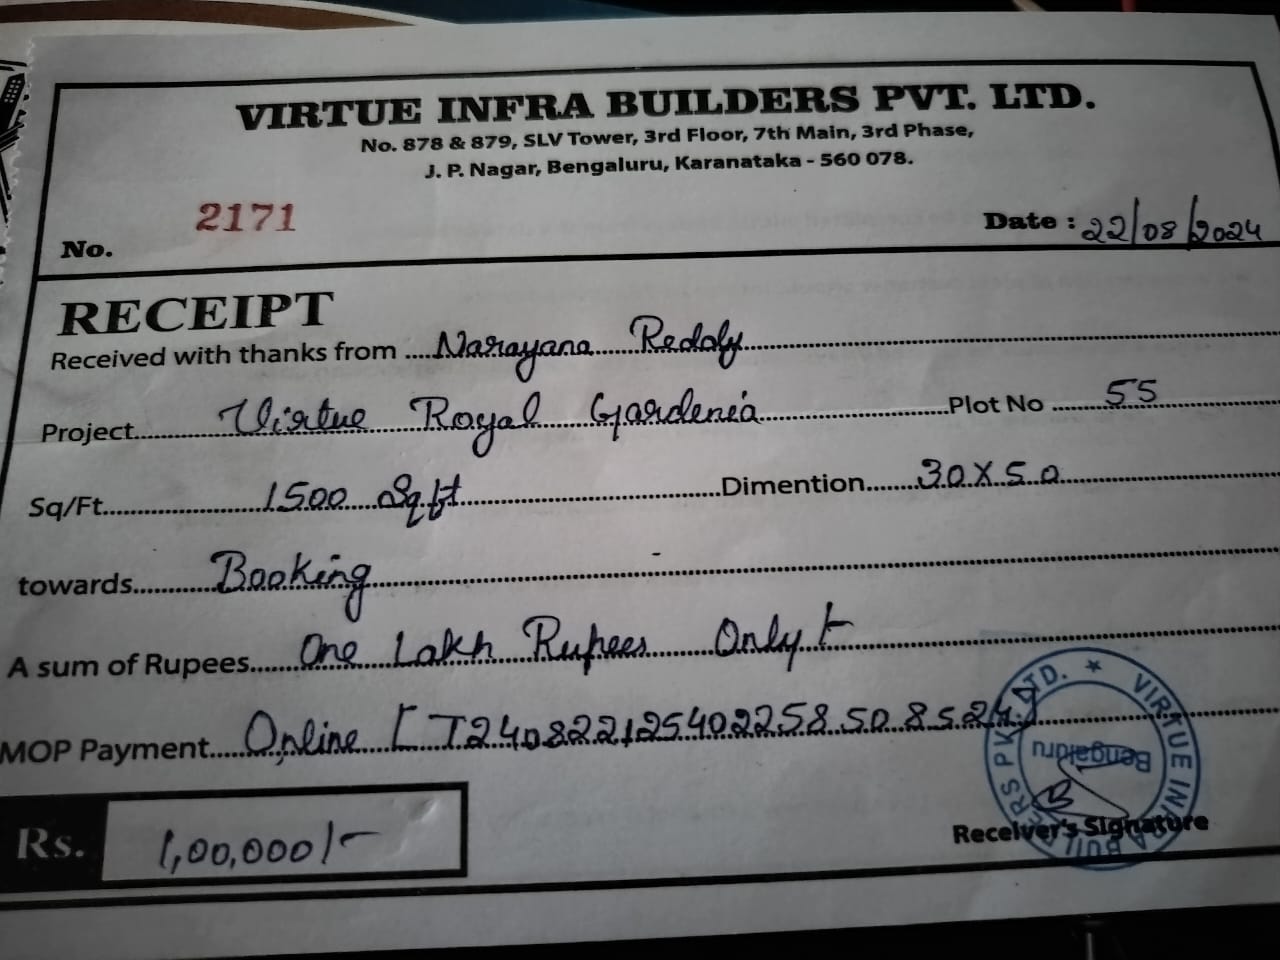 VIRTUE INFRA BUILDERS PVT. LTD.
No. 878 & 879, SLV Tower, 3rd Floor, 7th Main, 3rd Phase,
J. P. Nagar, Bengaluru, Karanataka - 560 078.
No. 2171 Date : 22/08/2024
RECEIPT
Received with thanks from Narayana Reddy
Project Virtue Royal Gardenia Plot No 55
Sq/Ft 1500 Sq.ft Dimention 30X50
towards Booking
A sum of Rupees One Lakh Rupees Only
MOP Payment Online [T240822125402258508524]
Rs. 1,00,000/-
Receiver's Signature
VIRTUE INFRA BUILDERS PVT. LTD. ★
Bengaluru